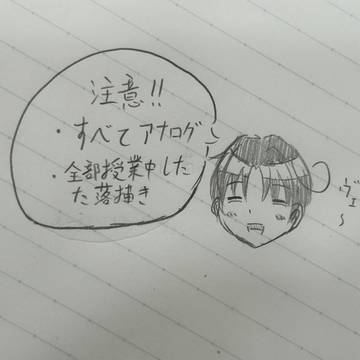 注意!!
・すべてアナログ
・全部授業中した
た落描き
ヴェ〜